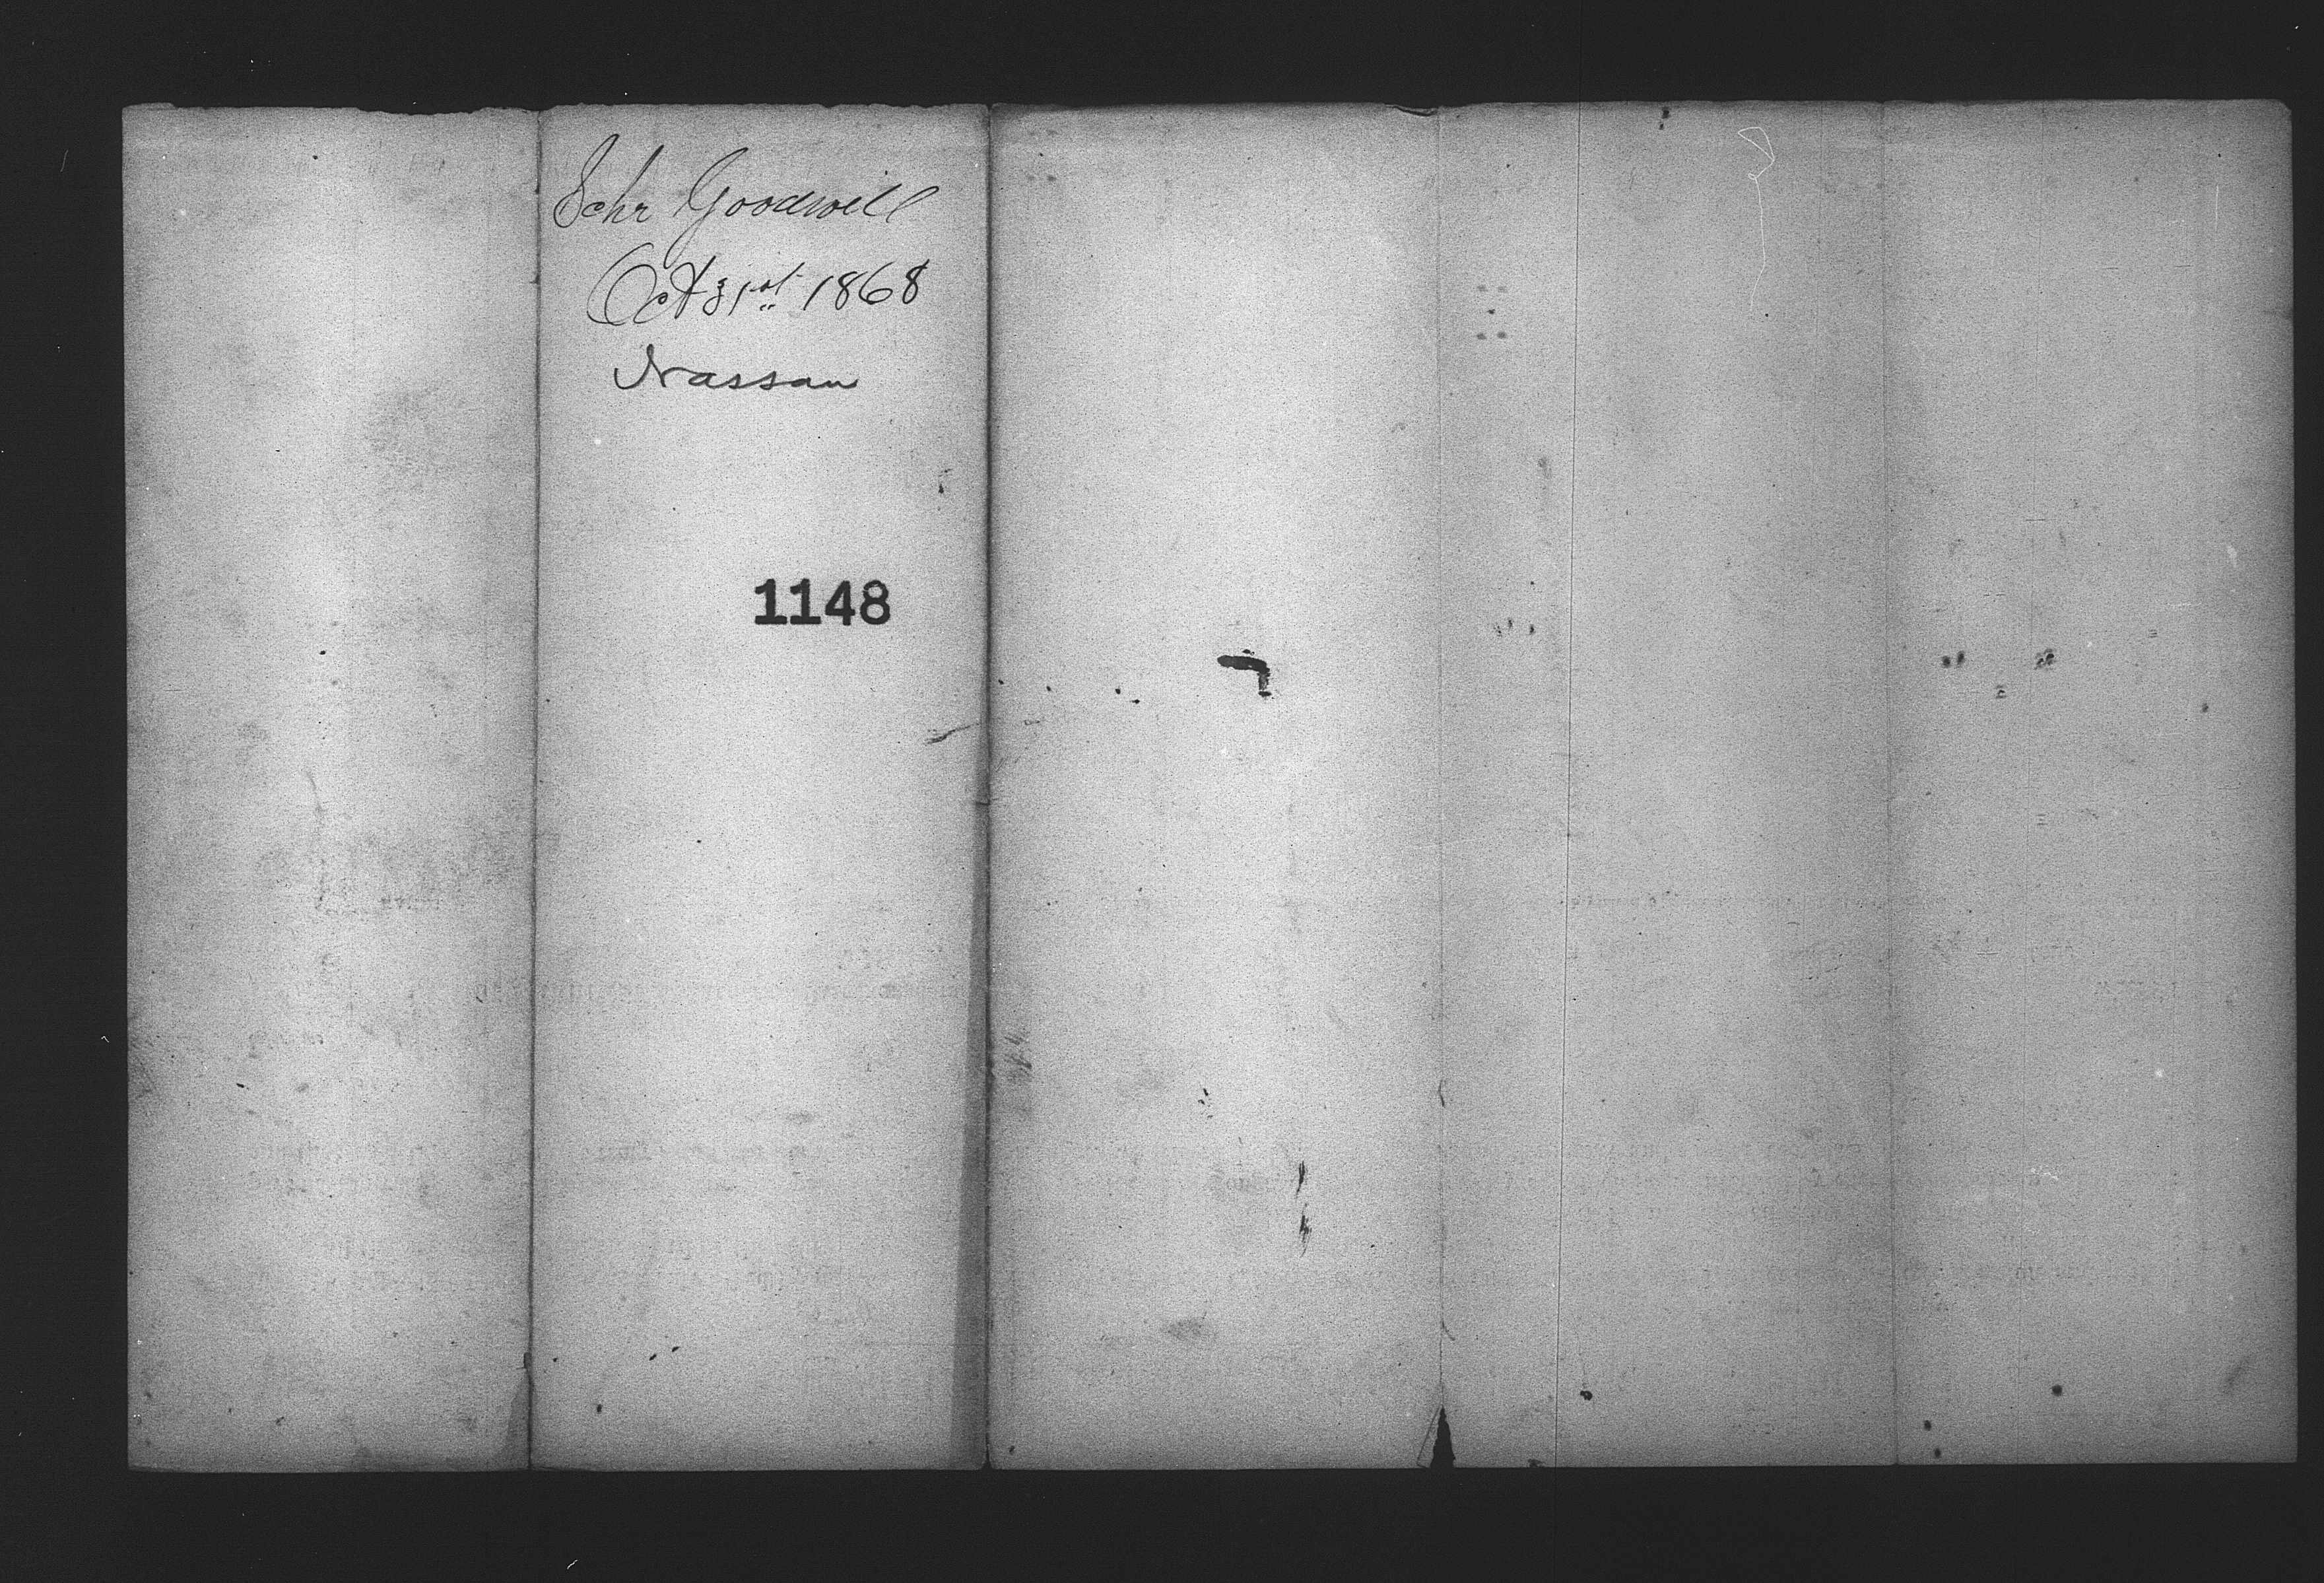 Schr Goodwill
Oct 31st 1868
Nassau
1148